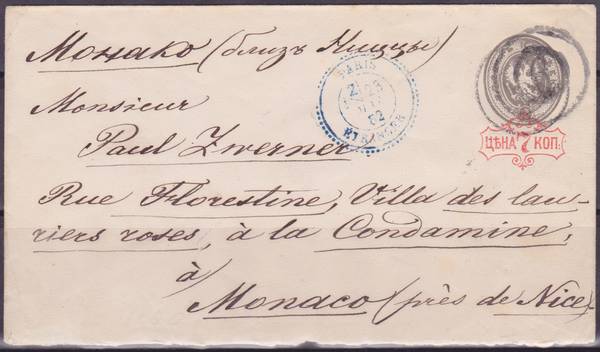 Монако (близъ Ниццы)
PARIS
23
82
ETRANGER
ЦѢНА 7 КОП.
Monsieur
Paul Zwerner
Rue Florestine, Villa des lau-
riers roses, à la Condamine,
à
Monaco (près de Nice)